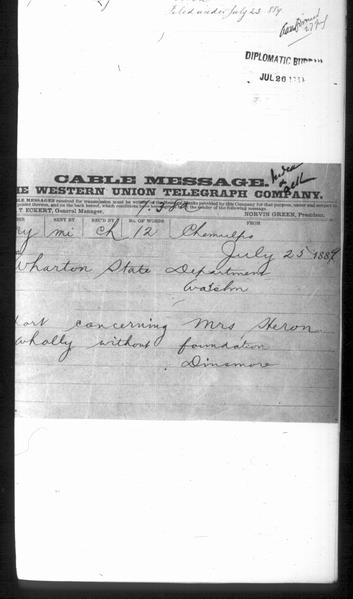 Filed under July 23. 889
DIPLOMATIC BUREAU
JUL 26
CABLE MESSAGE.
HE WESTERN UNION TELEGRAPH COMPANY.
T ECKERT, General Manager.
NORVIN GREEN, President.
SENT BY
REC'D BY
No. OF WORDS
FROM
mi
ch
12
Chemulpo
July 25 1889
Wharton State Department
Washn
ort concerning Mrs Heron
wholly without foundation
Dinsmore